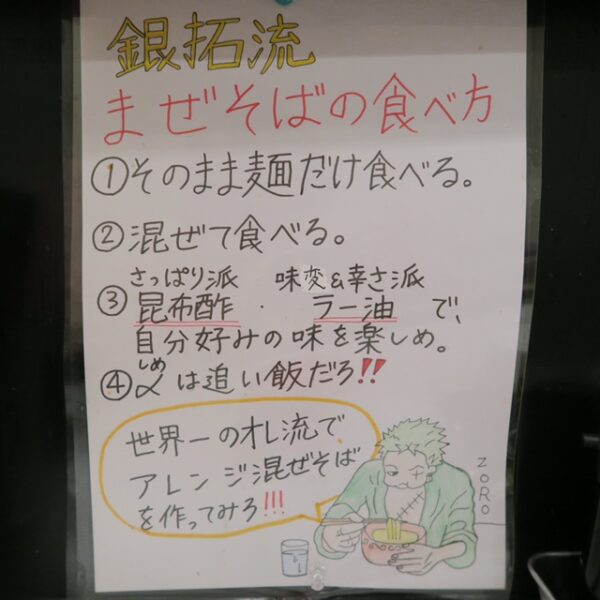 銀拓流
まぜそばの食べ方
①そのまま麺だけ食べる。
②混ぜて食べる。
さっぱり派 味変&辛さ派
③昆布酢・ラー油で、
自分好みの味を楽しめ。
しめ
④〆は追い飯だろ!!
世界一のオレ流で
アレンジ混ぜそば
を作ってみろ!!!
ZORO